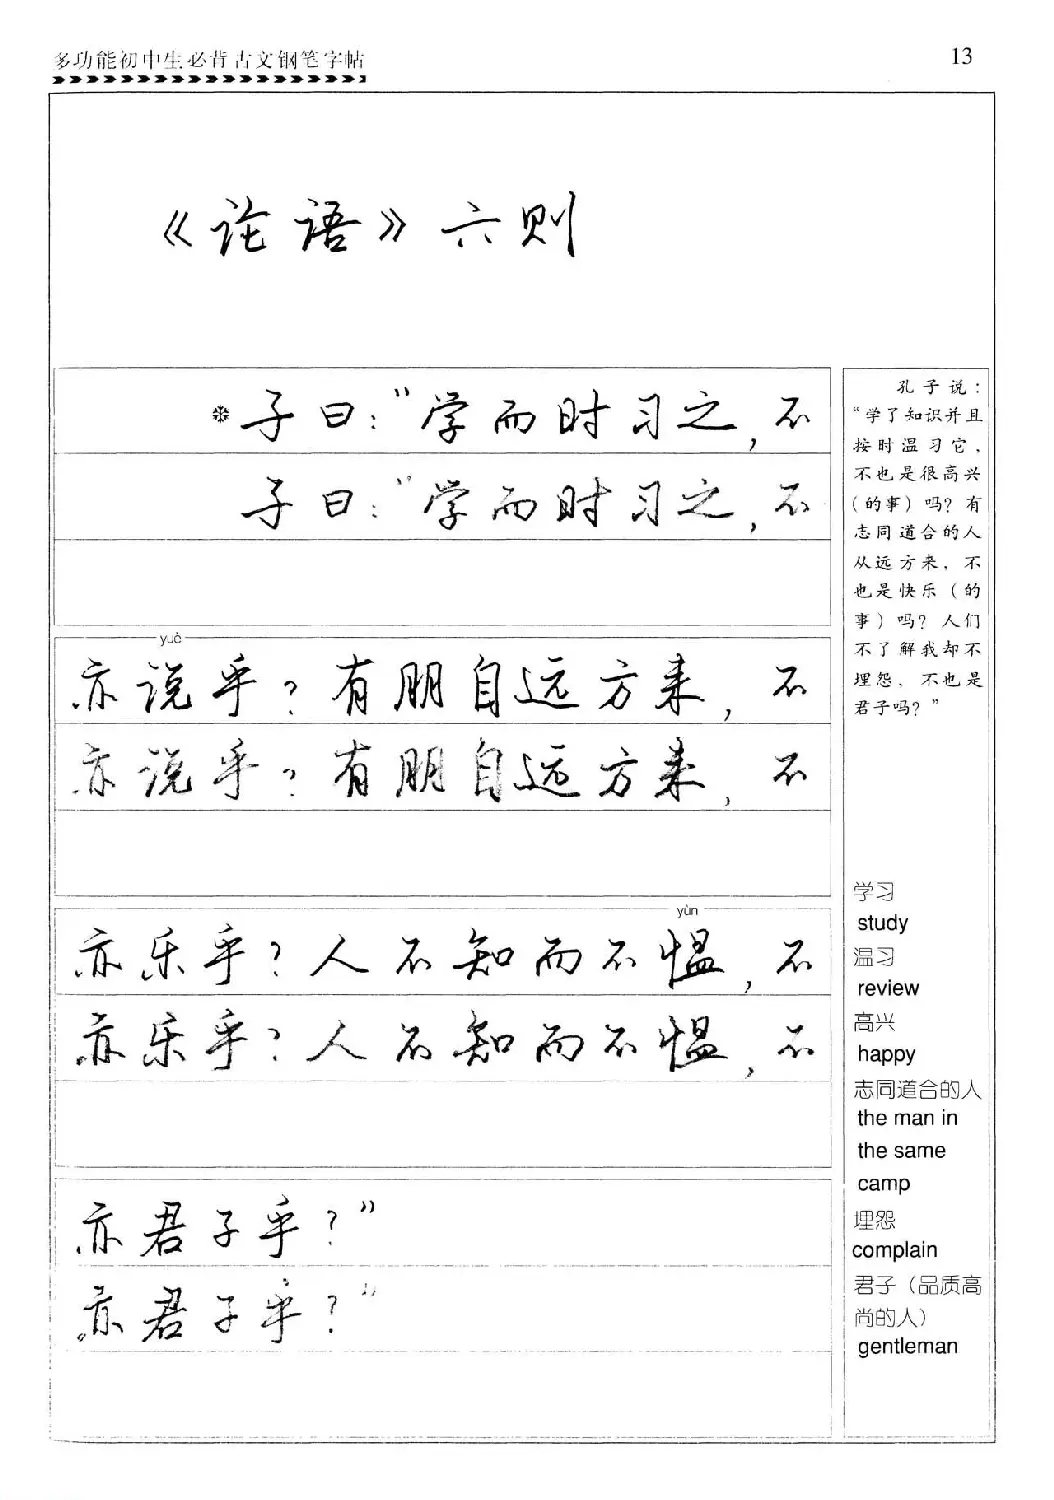 多功能初中生必背古文钢笔字帖
13
《论语》六则
子曰：“学而时习之，不
子曰：“学而时习之，不
yuè
亦说乎？有朋自远方来，不
亦说乎？有朋自远方来，不
yùn
亦乐乎？人不知而不愠，不
亦乐乎？人不知而不愠，不
亦君子乎？”
亦君子乎？”
孔子说：
“学了知识并且
按时温习它，
不也是很高兴
（的事）吗？有
志同道合的人
从远方来，不
也是快乐（的
事）吗？人们
不了解我却不
埋怨，不也是
君子吗？”
学习
study
温习
review
高兴
happy
志同道合的人
the man in
the same
camp
埋怨
complain
君子（品质高
尚的人）
gentleman